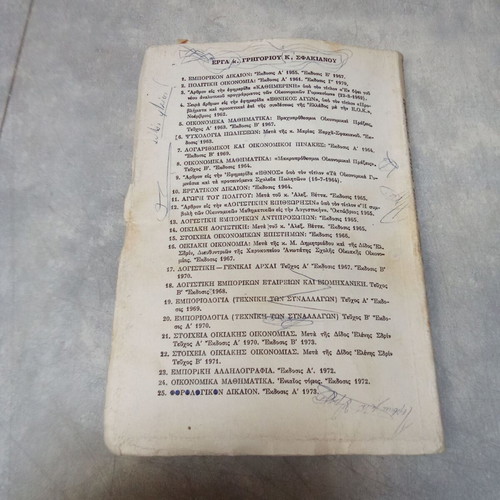 ΕΡΓΑ ΓΡΗΓΟΡΙΟΥ Κ. ΣΦΑΚΙΑΝΟΥ
1. ΕΜΠΟΡΙΚΟΝ ΔΙΚΑΙΟΝ. Ἔκδοσις Α' 1955. Ἔκδοσις Β' 1957.
2. ΠΟΛΙΤΙΚΗ ΟΙΚΟΝΟΜΙΑ: Ἔκδοσις Α' 1961. Ἔκδοσις 1970.
3. Ἄρθρον εἰς τὴν ἐφημερίδα «ΚΑΘΗΜΕΡΙΝΗ» ὑπὸ τὸν τίτλον
νέου ἀναλυτικοῦ προγράμματος τῶν Οἰκονομικῶν Γυμνασίων
4. Σειρὰ ἄρθρων εἰς τὴν ἐφημερίδα «ΕΘΝΙΚΟΣ ΑΓΩΝ» ὑπὸ τὸν τίτλον
βλήματα καὶ προοπτικαὶ τῆς συνδέσεως τῆς Ἑλλάδος μὲ τὴν Ε.Ο.Κ.»,
Νοέμβριος 1962.
5. ΟΙΚΟΝΟΜΙΚΑ ΜΑΘΗΜΑΤΙΚΑ: Βραχυπρόθεσμοι Οἰκονομικαὶ Πράξεις,
Τεῦχος Α' 1963. Ἔκδοσις Β' 1967.
6. ΨΥΧΟΛΟΓΙΑ ΠΩΛΗΣΕΩΝ: Μετὰ τῆς κ. Μαρίας
δοσις 1963.
7. ΛΟΓΑΡΙΘΜΙΚΟΙ ΚΑΙ ΟΙΚΟΝΟΜΙΚΟΙ ΠΙΝΑΚΕΣ: Ἔκδοσις Α' 1964.
Ἔκδοσις Β' 1969.
8. ΟΙΚΟΝΟΜΙΚΑ ΜΑΘΗΜΑΤΙΚΑ: «Μακροπρόθεσμοι Οἰκονομικαὶ Πράξεις»,
Τεῦχος Β', Ἔκδοσις 1964.
9. Ἄρθρον εἰς τὴν ἐφημερίδα «ΕΘΝΟΣ» ὑπὸ τὸν τίτλον «Τὰ Οἰκονομικὰ Γυμνάσια
καὶ τὰ προτεινόμενα Σχολεῖα Πωλητῶν» (18-7-1964).
10. ΕΡΓΑΤΙΚΟΝ ΔΙΚΑΙΟΝ: Ἔκδοσις 1964.
11. ΑΓΩΓΗ ΤΟΥ ΠΟΛΙΤΟΥ: Μετὰ τοῦ κ. Ἀλεξ. Πέττα. Ἔκδοσις 1965.
12. Ἄρθρον εἰς «ΛΟΓΙΣΤΙΚΗΝ ΕΠΙΘΕΩΡΗΣΙΝ» ὑπὸ τὸν τίτλον «Ἡ συμβολὴ
τῶν Οἰκονομικῶν Μαθηματικῶν εἰς τὴν Λογιστικήν», Ὀκτώβριος 1965.
13. ΛΟΓΙΣΤΙΚΗ ΕΜΠΟΡΙΚΩΝ ΑΝΤΙΠΡΟΣΩΠΩΝ: Ἔκδοσις 1965.
14. ΟΙΚΙΑΚΗ ΛΟΓΙΣΤΙΚΗ: Μετὰ τοῦ κ. Ἀλεξ. Πέττα. Ἔκδοσις 1965.
15. ΣΤΟΙΧΕΙΑ ΟΙΚΟΝΟΜΙΚΗΣ ΕΠΙΣΤΗΜΗΣ: Ἔκδοσις 1966.
16. ΟΙΚΙΑΚΗ ΟΙΚΟΝΟΜΙΑ: Μετὰ τῆς κ. Μ. Δημητριάδου καὶ τῆς Δίδος Ἑλ.
Σδρίν, Διευθυντρίας τῆς Χαροκοπείου Ἀνωτάτης Σχολῆς Οἰκιακῆς Οἰκονομίας.
Ἔκδοσις 1967.
17. ΛΟΓΙΣΤΙΚΗ - ΓΕΝΙΚΑΙ ΑΡΧΑΙ Τεῦχος Α' Ἔκδοσις 1967. Ἔκδοσις Β'
1970.
18. ΛΟΓΙΣΤΙΚΗ ΕΜΠΟΡΙΚΩΝ ΕΤΑΙΡΕΙΩΝ ΚΑΙ ΒΙΟΜΗΧΑΝΙΚΗ. Τεῦχος
Β' Ἔκδοσις 1968.
19. ΕΜΠΟΡΙΟΛΟΓΙΑ (ΤΕΧΝΙΚΗ ΤΩΝ ΣΥΝΑΛΛΑΓΩΝ) Τεῦχος Α' Ἔκδοσις
1969.
20. ΕΜΠΟΡΙΟΛΟΓΙΑ (ΤΕΧΝΙΚΗ ΤΩΝ ΣΥΝΑΛΛΑΓΩΝ) Τεῦχος Β' Ἔκδοσις
Α' 1970.
21. ΣΤΟΙΧΕΙΑ ΟΙΚΙΑΚΗΣ ΟΙΚΟΝΟΜΙΑΣ. Μετὰ τῆς Δίδος Ἑλένης Σδρίν
Τεῦχος Α' Ἔκδοσις Α' 1970. Ἔκδοσις Β' 1973.
22. ΣΤΟΙΧΕΙΑ ΟΙΚΙΑΚΗΣ ΟΙΚΟΝΟΜΙΑΣ. Μετὰ τῆς Δίδος Ἑλένης Σδρίν
Τεῦχος Β' 1971.
23. ΕΜΠΟΡΙΚΗ ΑΛΛΗΛΟΓΡΑΦΙΑ. Ἔκδοσις Α'. 1972.
24. ΟΙΚΟΝΟΜΙΚΑ ΜΑΘΗΜΑΤΙΚΑ. Ἑνιαῖος τόμος, Ἔκδοσις 1972.
25. ΦΟΡΟΛΟΓΙΚΟΝ ΔΙΚΑΙΟΝ. Ἔκδοσις Α' 1973.